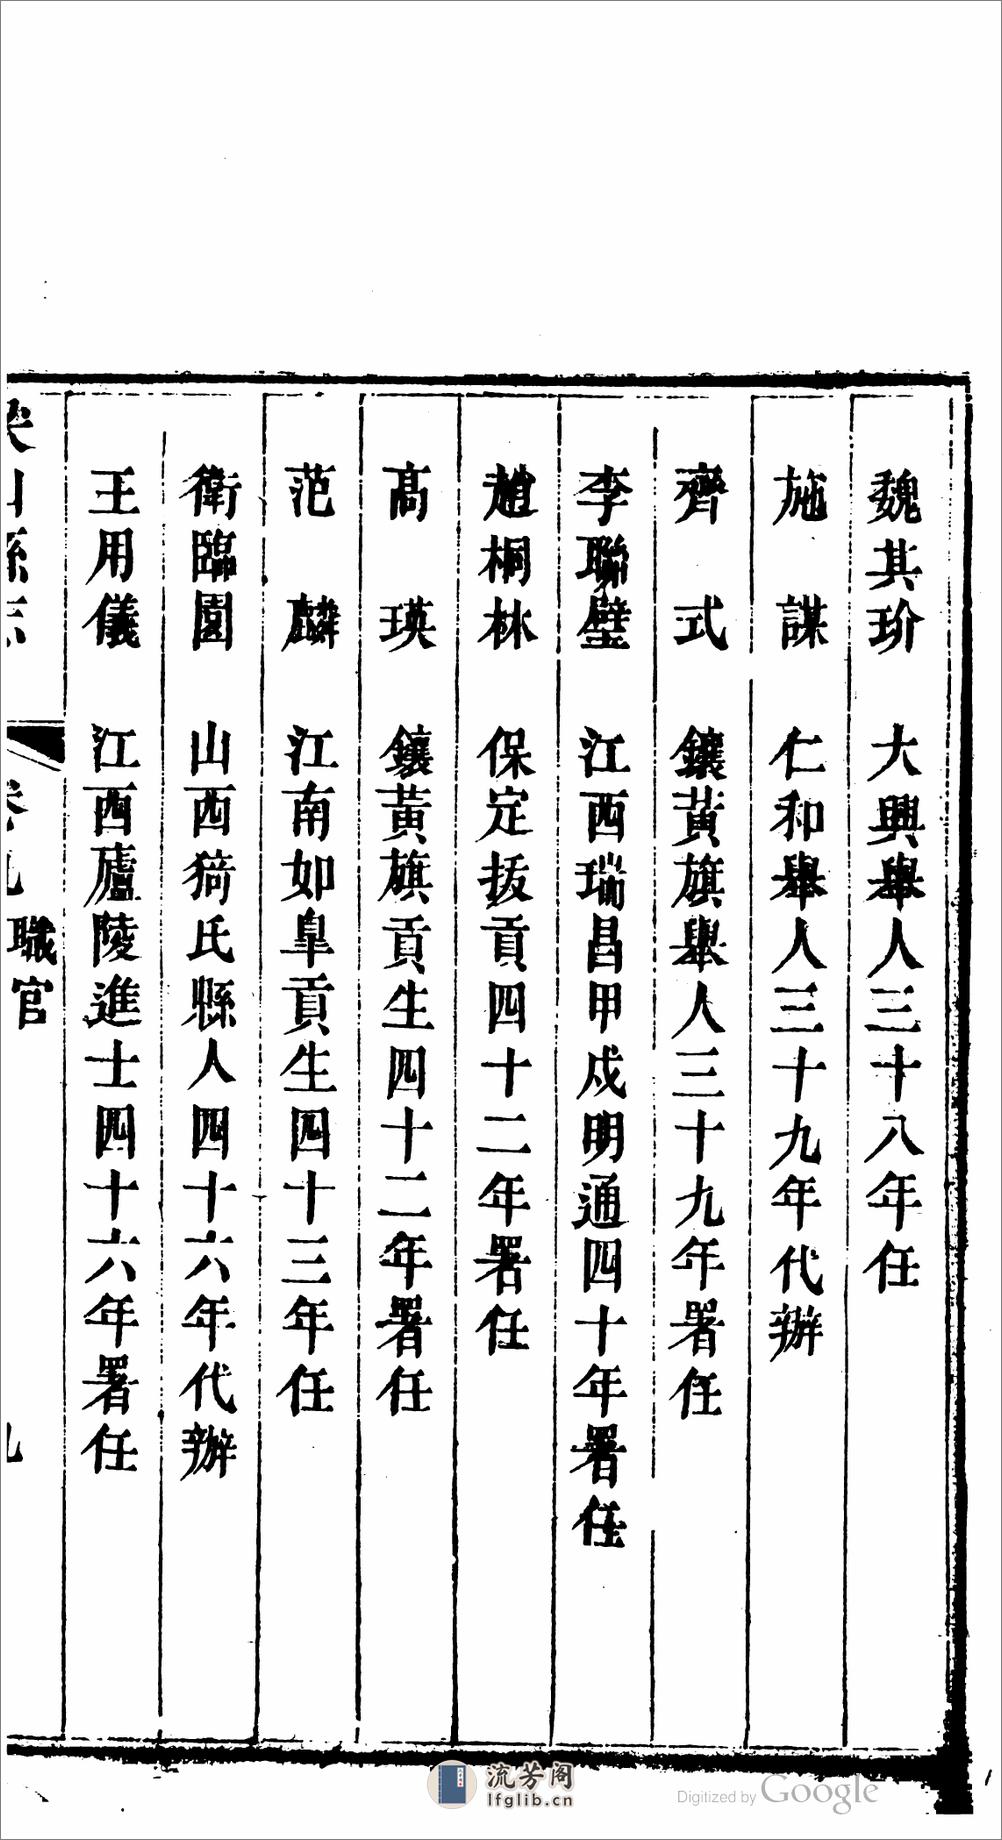 魏其玠 大興舉人三十八年任
施謀 仁和舉人三十九年代辦
齊式 鑲黃旗舉人三十九年署任
李聯璧 江西瑞昌甲戌明通四十年署任
趙桐林 保定拔貢四十二年署任
高瑛 鑲黃旗貢生四十二年署任
范麟 江南如臯貢生四十三年任
衛臨園 山西猗氏縣人四十六年代辦
王用儀 江西廬陵進士四十六年署任
山縣志 卷九 職官 九
流芳阁
lfglib.cn
Digitized by Google